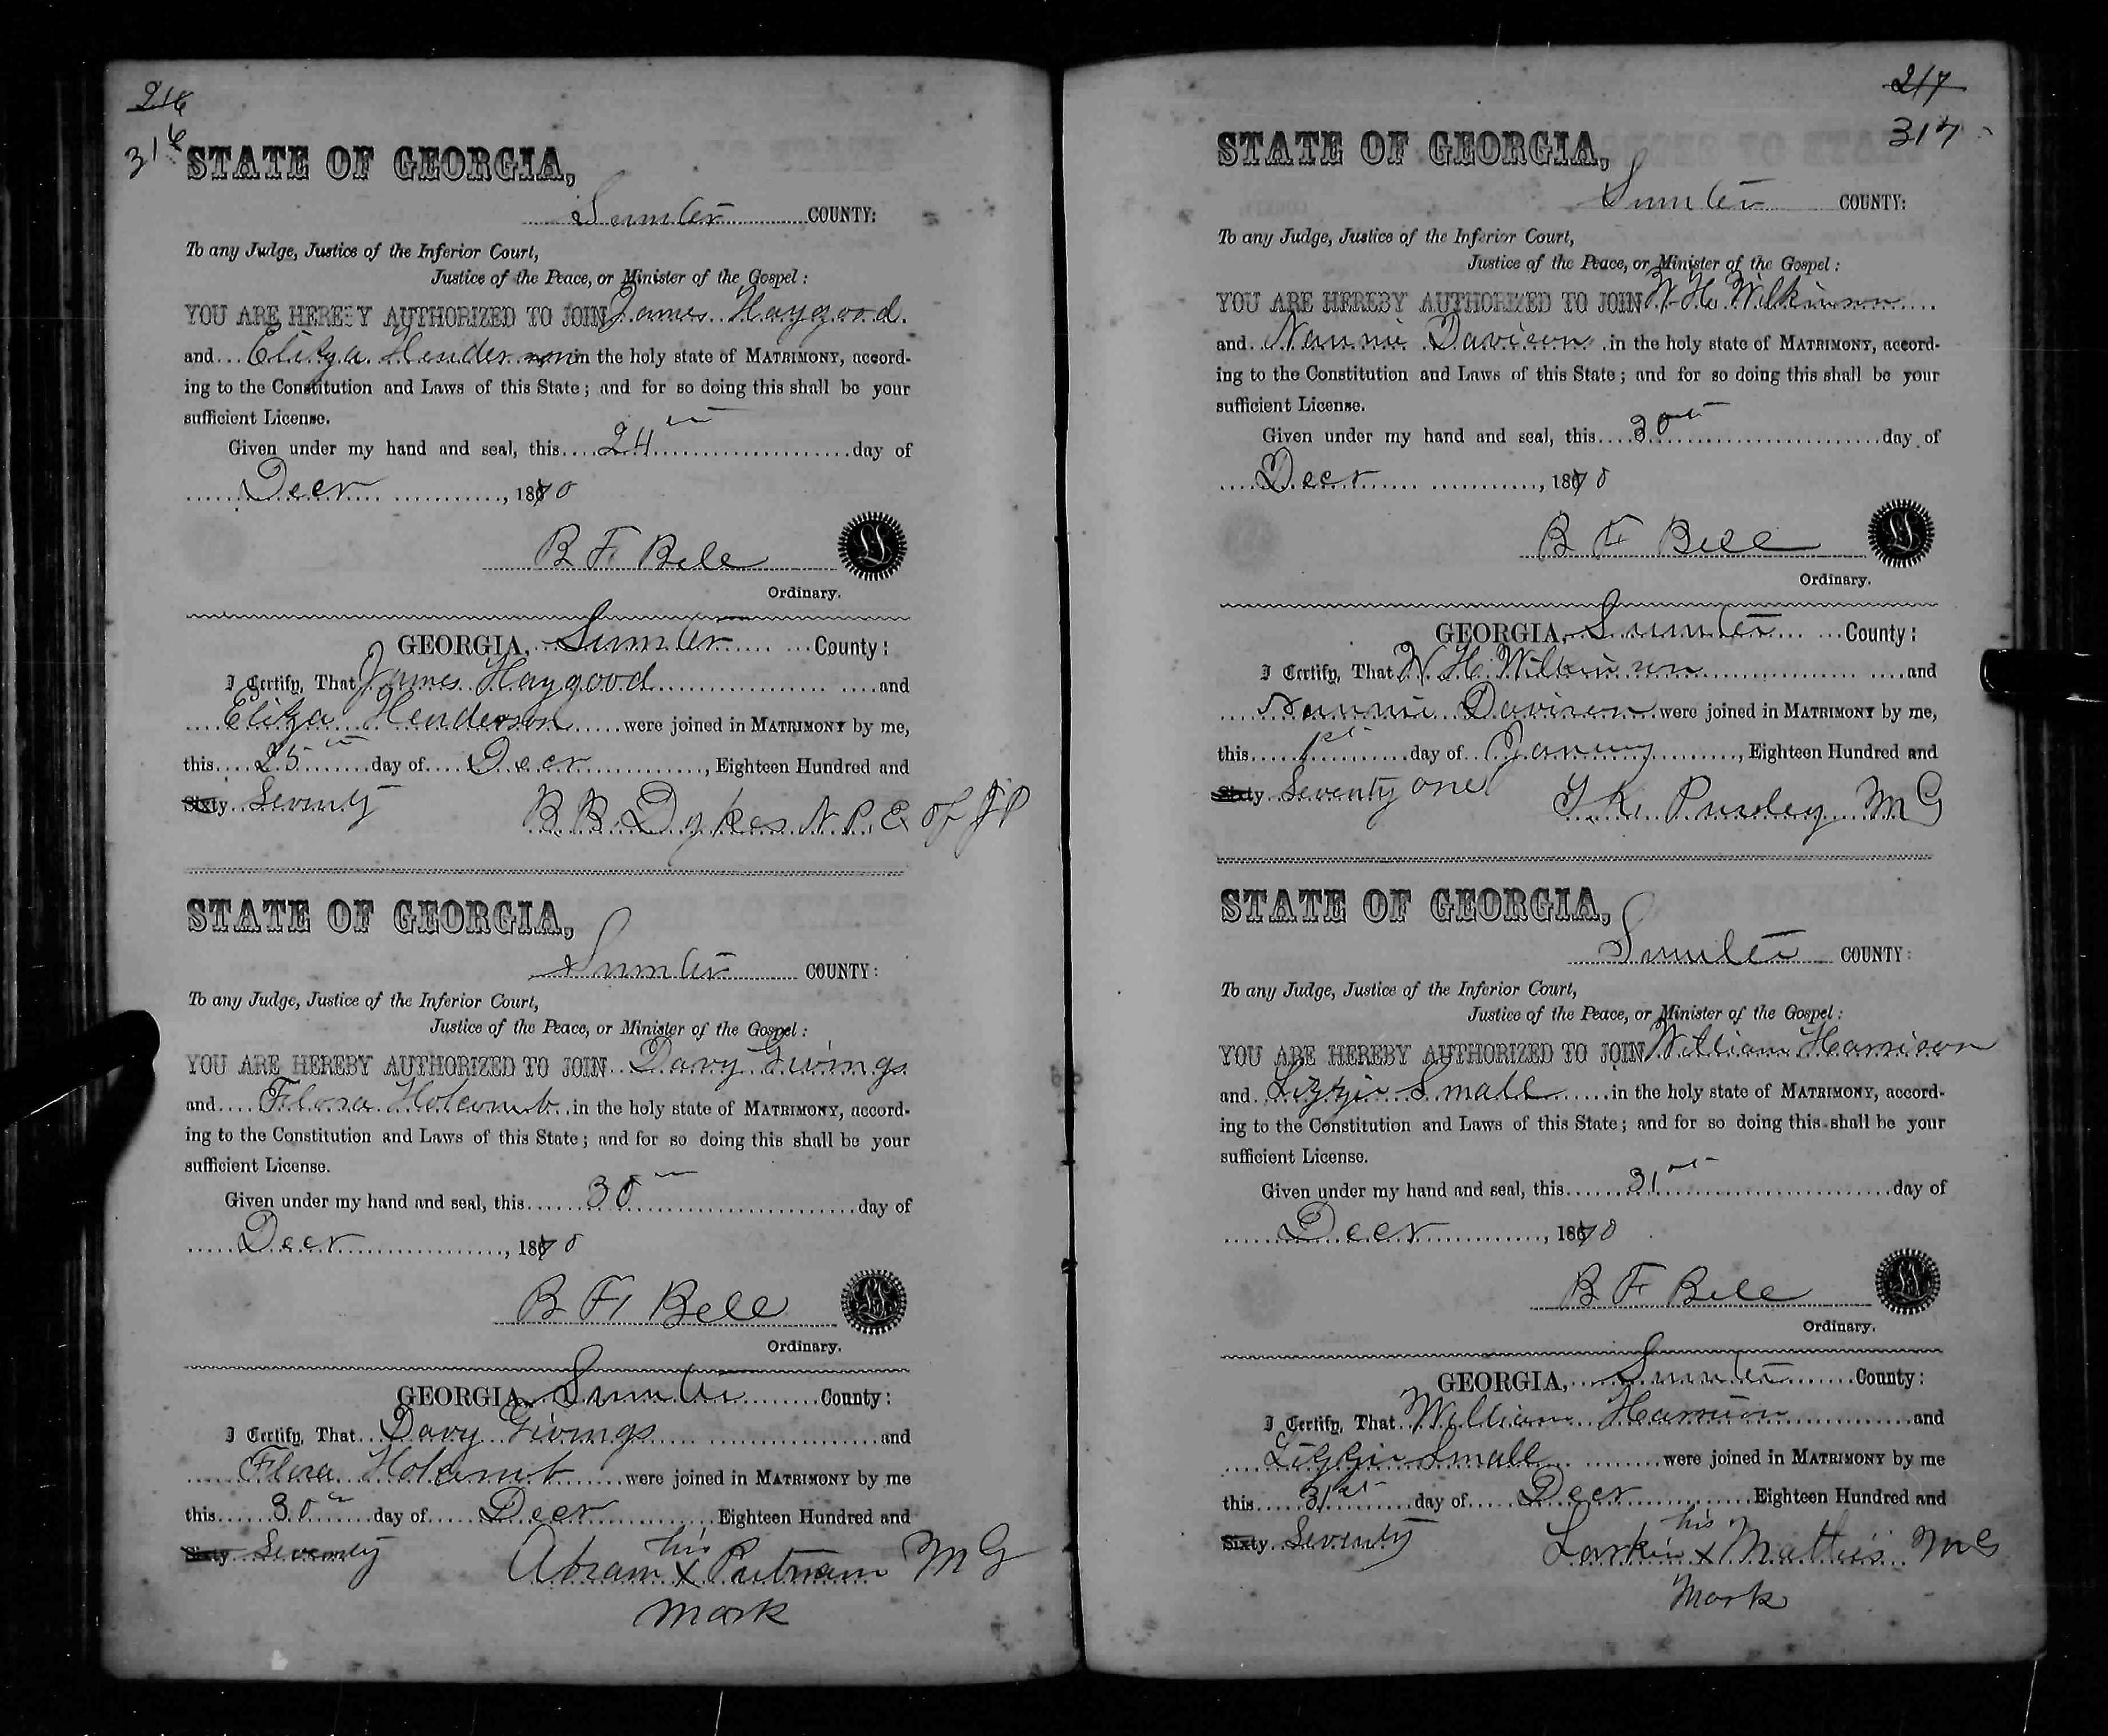 216
316
STATE OF GEORGIA,
Sumter COUNTY:
To any Judge, Justice of the Inferior Court,
Justice of the Peace, or Minister of the Gospel:
YOU ARE HEREBY AUTHORIZED TO JOIN James Haygood
and Eliza Henderson in the holy state of MATRIMONY, accord-
ing to the Constitution and Laws of this State; and for so doing this shall be your
sufficient License.
Given under my hand and seal, this 24th day of
Decr, 1870
B F Bell
Ordinary.
GEORGIA, Sumter County:
I Certify, That James Haygood and
Eliza Henderson were joined in MATRIMONY by me,
this 25th day of Decr, Eighteen Hundred and
Sixty Seventy B. B. Dykes N. P. E of JP
STATE OF GEORGIA,
Sumter COUNTY:
To any Judge, Justice of the Inferior Court,
Justice of the Peace, or Minister of the Gospel:
YOU ARE HEREBY AUTHORIZED TO JOIN Davy Givings
and Flora Holcomb in the holy state of MATRIMONY, accord-
ing to the Constitution and Laws of this State; and for so doing this shall be your
sufficient License.
Given under my hand and seal, this 30th day of
Decr, 1870
B F Bell
Ordinary.
GEORGIA, Sumter County:
I Certify, That Davy Givings and
Flora Holcomb were joined in MATRIMONY by me
this 30th day of Decr Eighteen Hundred and
Sixty Seventy Abram his x Putnam M G
mark
217
317
STATE OF GEORGIA,
Sumter COUNTY:
To any Judge, Justice of the Inferior Court,
Justice of the Peace, or Minister of the Gospel:
YOU ARE HEREBY AUTHORIZED TO JOIN W. H. Wilkinson
and Nannie Davison in the holy state of MATRIMONY, accord-
ing to the Constitution and Laws of this State; and for so doing this shall be your
sufficient License.
Given under my hand and seal, this 30th day of
Decr, 1870
B F Bell
Ordinary.
GEORGIA, Sumter County:
I Certify, That W. H. Wilkinson and
Nannie Davison were joined in MATRIMONY by me,
this 1st day of January, Eighteen Hundred and
Sixty Seventy one Pursley M G
STATE OF GEORGIA,
Sumter COUNTY:
To any Judge, Justice of the Inferior Court,
Justice of the Peace, or Minister of the Gospel:
YOU ARE HEREBY AUTHORIZED TO JOIN William Harrison
and Lizzie Small in the holy state of MATRIMONY, accord-
ing to the Constitution and Laws of this State; and for so doing this shall be your
sufficient License.
Given under my hand and seal, this 31st day of
Decr, 1870
B F Bell
Ordinary.
GEORGIA, Sumter County:
I Certify, That William Harrison and
Lizzie Small were joined in MATRIMONY by me
this 31st day of Decr Eighteen Hundred and
Sixty Seventy Larkin his x Matthis M G
Mark